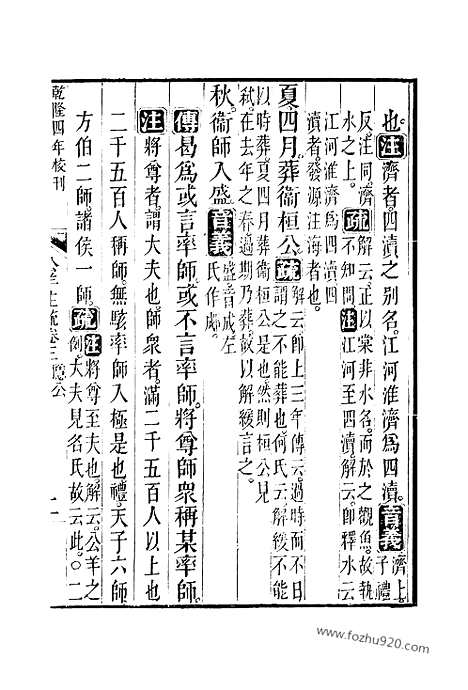 也。注濟者。四瀆之別名。江河淮濟爲四瀆。音義濟上
子禮
反。注同。濟解云正以棠非水名。而於之觀魚。故執
水之上。疏不知問注江河至四瀆。解云卽釋水云
江河淮濟爲四瀆四
瀆者。發源注海者也。
夏。四月。葬衛桓公。疏解云卽上三年傳云過時而不日
謂之不能葬也。何氏云解緩不能
以時葬。夏四月葬衛桓公是也。然則桓公見
弑。在去年之春。過期乃葬。故以解緩言之。
秋。衛師入盛。音義盛音成左
氏作郕。
傳曷爲或言率師。或不言率師。將尊師衆稱某率師。
注將尊者。謂大夫也師衆者。滿二千五百人以上也
二千五百人稱師。無駭率師入極是也。禮。天子六師
方伯二師。諸侯一師。疏注將尊至夫也。解云。公羊之
例。大夫見名氏故云此。〇二
乾隆四年校刊
公羊注疏卷三隱公
www.fozhu920.com